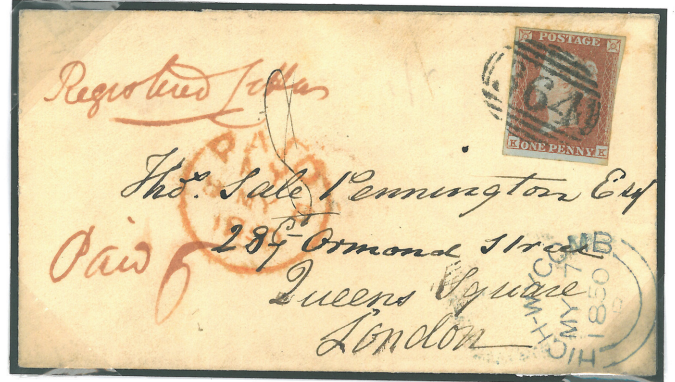 POSTAGE
ONE PENNY
K K
Registered Letter
PAID
MY
Thos. Sale Pennington Esq
28 Gt Ormond Street
Paid 6
Queens Square
London
HIGH-WYCOMB
MY 7
1850